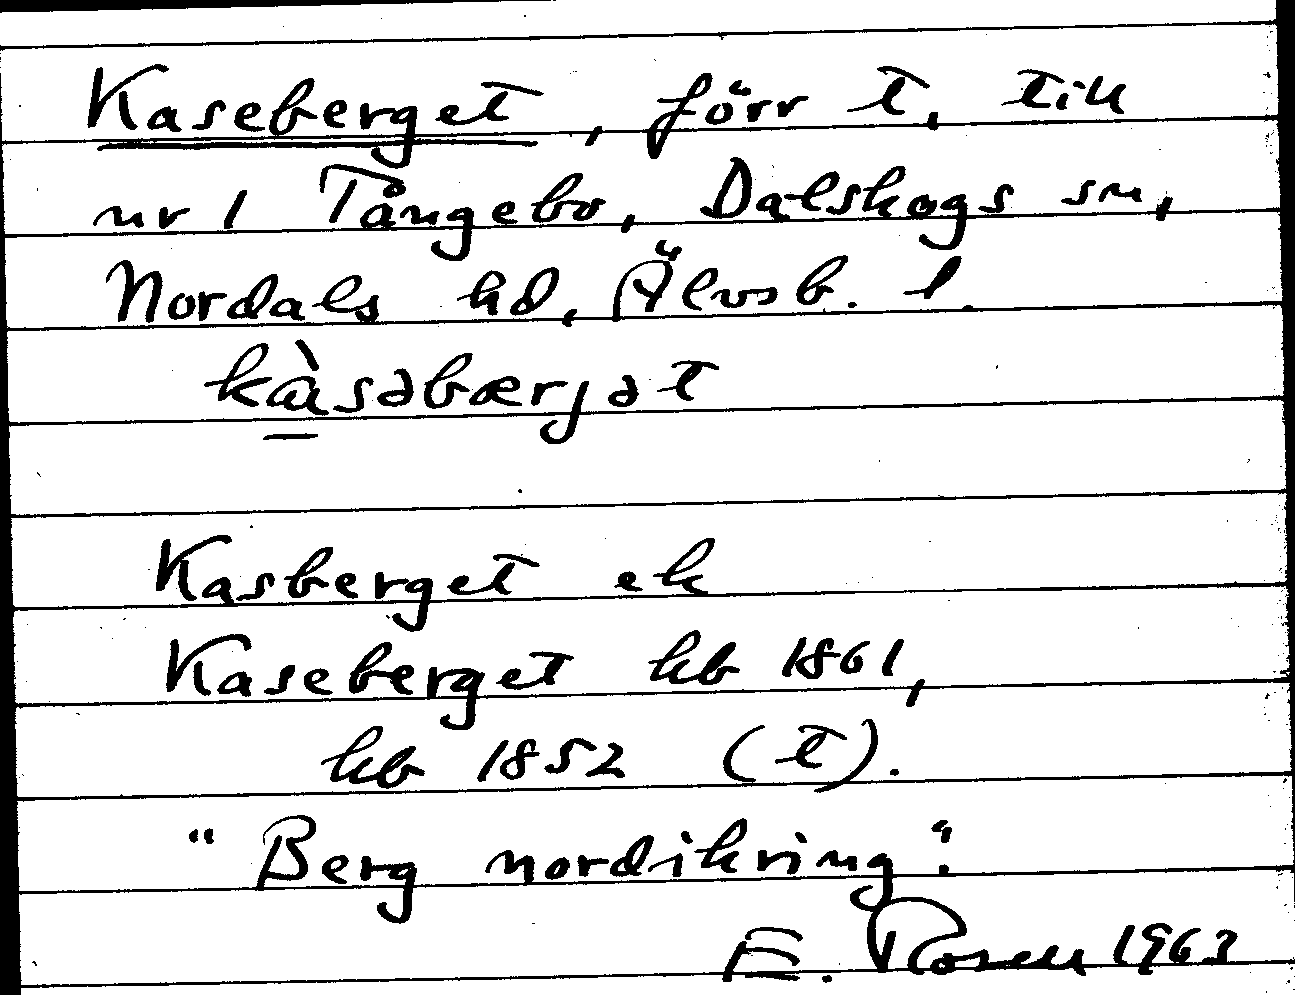 Kaseberget, förr t, till
nr 1 Tångebo, Dalskogs sn,
Nordals hd, Älvsb. l.
kàsəbærjət
Kasberget ek
Kaseberget hb 1861,
hb 1852 (t).
"Berg nordikring".
E. Rosell 1963